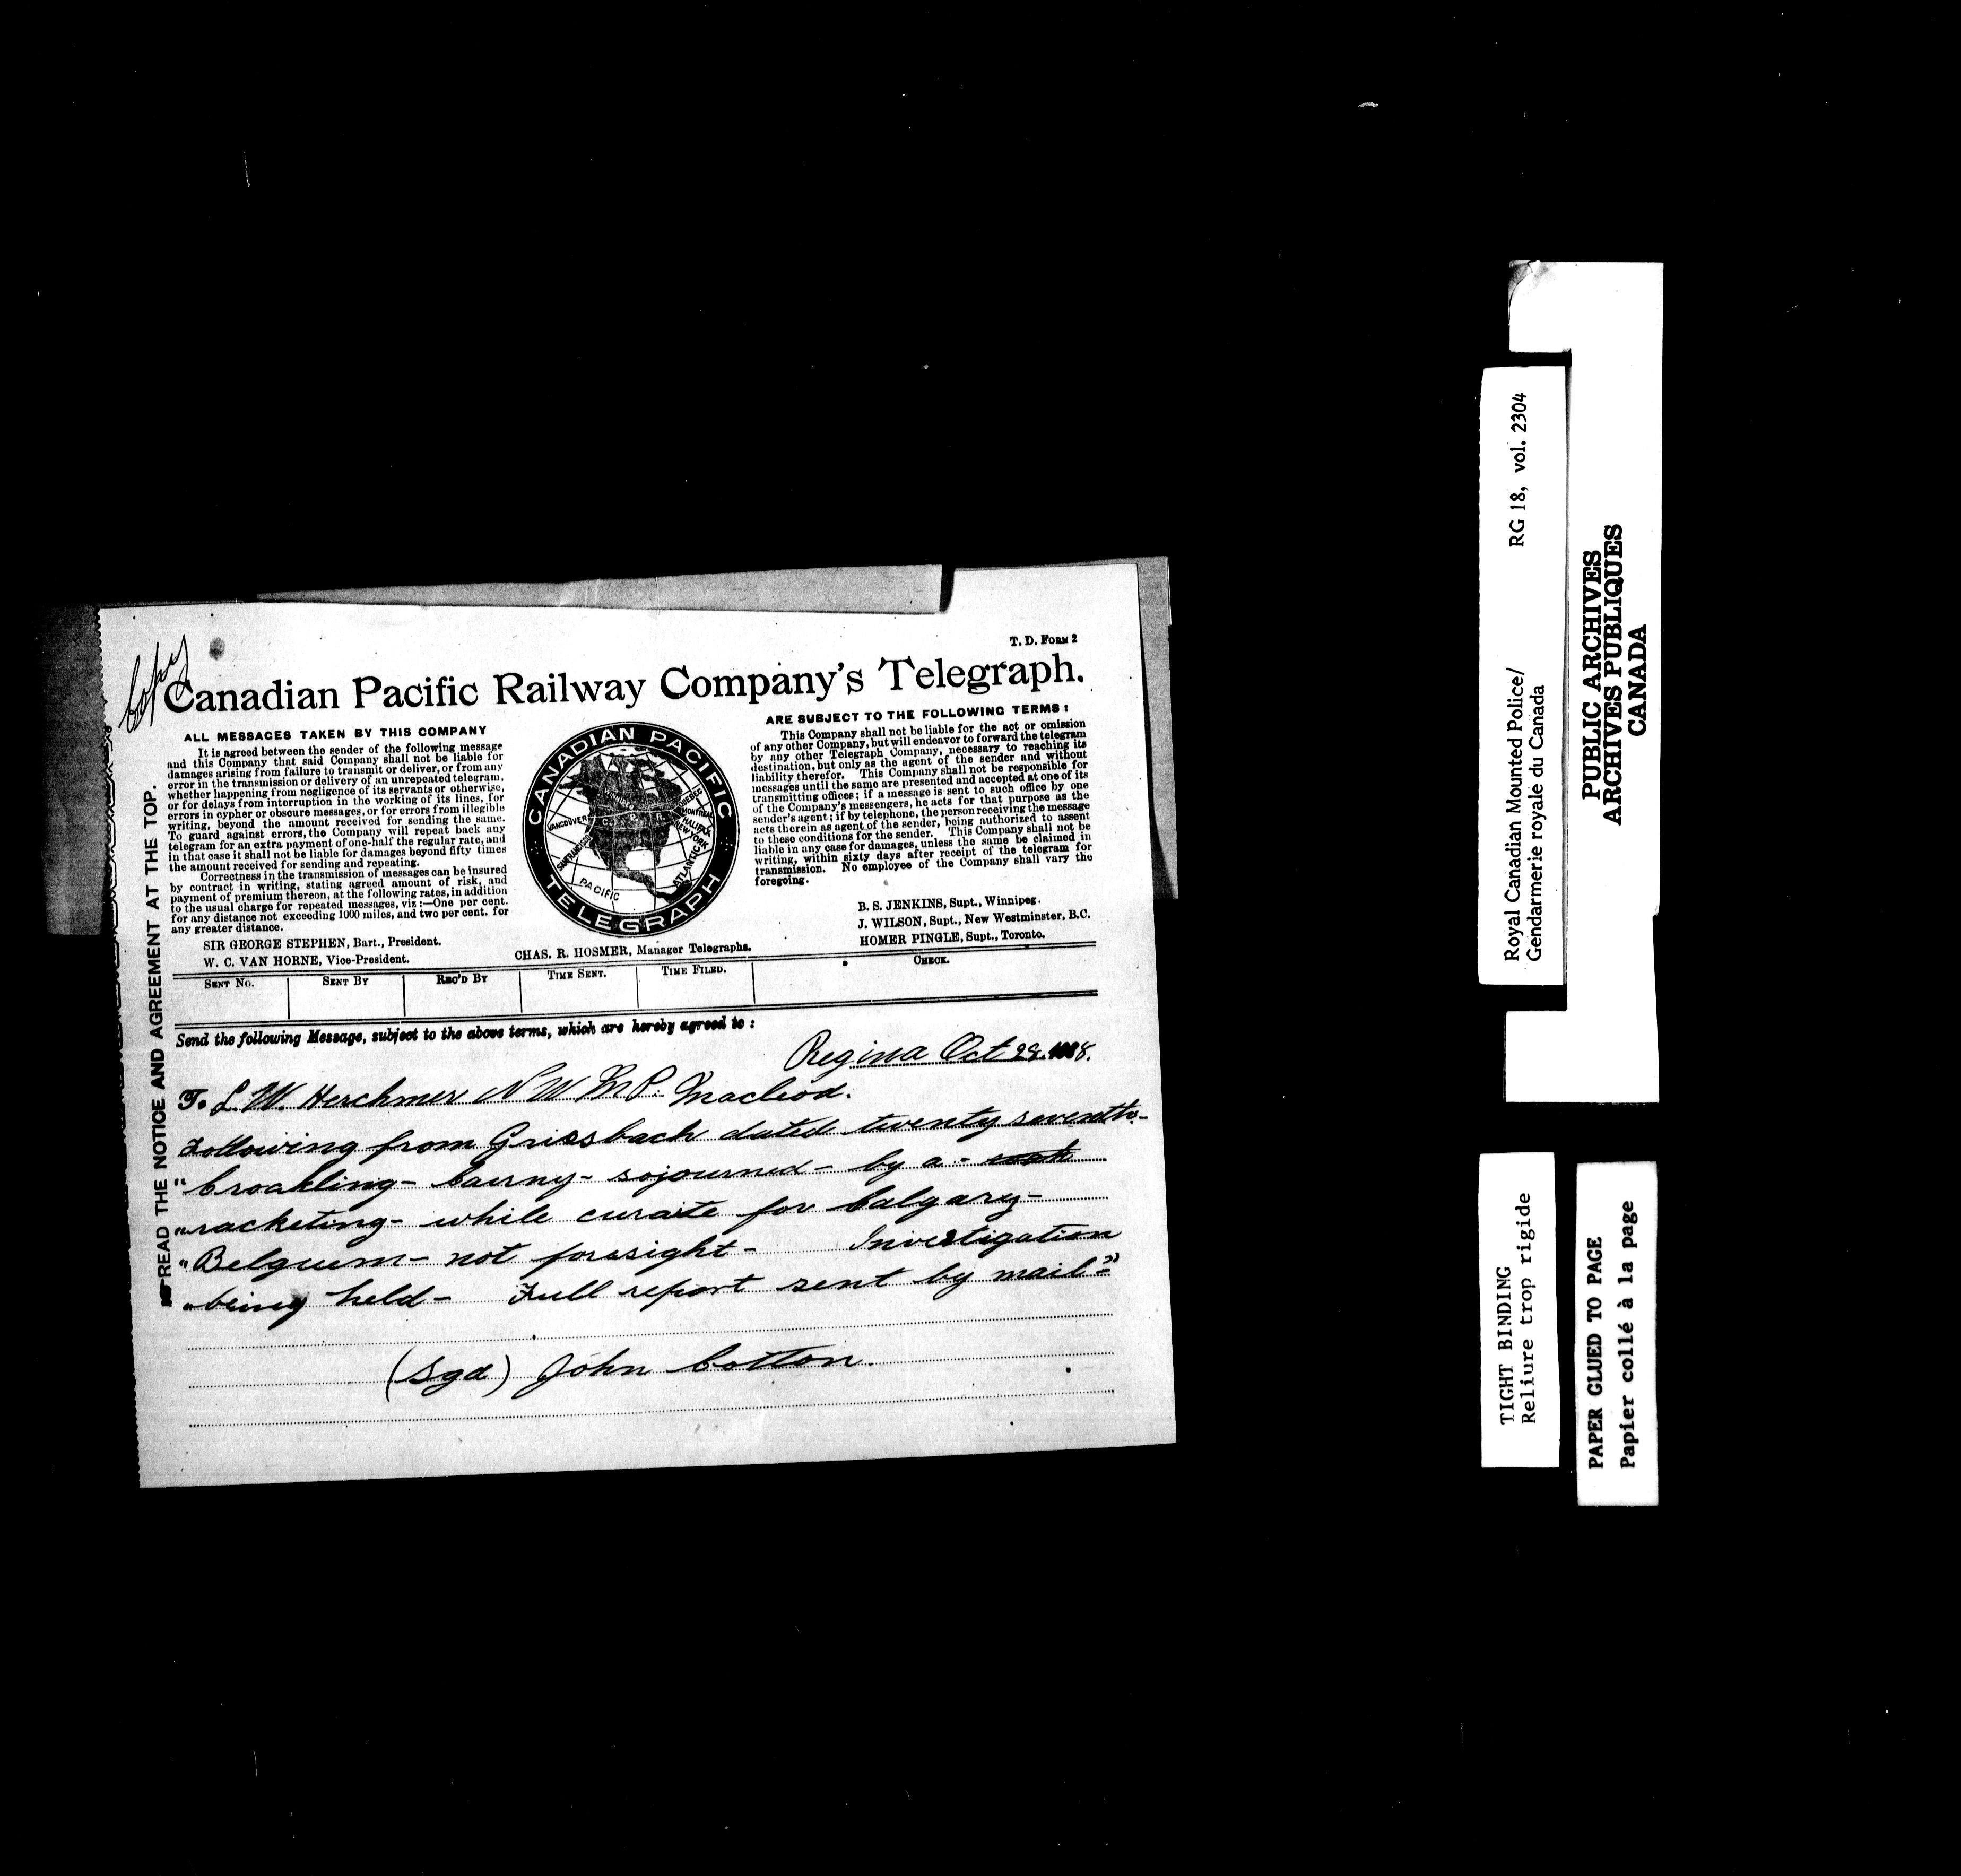 Copy
T. D. FORM 2
Canadian Pacific Railway Company's Telegraph.
ALL MESSAGES TAKEN BY THIS COMPANY
It is agreed between the sender of the following message
and this Company that said Company shall not be liable for
damages arising from failure to transmit or deliver, or from any
error in the transmission or delivery of an unrepeated telegram,
whether happening from negligence of its servants or otherwise,
or for delays from interruption in the working of its lines, for
errors in cypher or obscure messages, or for errors from illegible
writing, beyond the amount received for sending the same.
To guard against errors, the Company will repeat back any
telegram for an extra payment of one-half the regular rate, and
in that case it shall not be liable for damages beyond fifty times
the amount received for sending and repeating.
Correctness in the transmission of messages can be insured
by contract in writing, stating agreed amount of risk, and
payment of premium thereon, at the following rates, in addition
to the usual charge for repeated messages, viz :—One per cent.
for any distance not exceeding 1000 miles, and two per cent. for
any greater distance.
SIR GEORGE STEPHEN, Bart., President.
W. C. VAN HORNE, Vice-President.
CANADIAN PACIFIC
TELEGRAPH
VANCOUVER
SAN FRANCISCO
QUEBEC
MONTREAL
HALIFAX
NEW YORK
ATLANTIC
PACIFIC
CHAS. R. HOSMER, Manager Telegraphs.
ARE SUBJECT TO THE FOLLOWING TERMS :
This Company shall not be liable for the act or omission
of any other Company, but will endeavor to forward the telegram
by any other Telegraph Company, necessary to reaching its
destination, but only as the agent of the sender and without
liability therefor. This Company shall not be responsible for
messages until the same are presented and accepted at one of its
transmitting offices ; if a message is sent to such office by one
of the Company's messengers, he acts for that purpose as the
sender's agent ; if by telephone, the person receiving the message
acts therein as agent of the sender, being authorized to assent
to these conditions for the sender. This Company shall not be
liable in any case for damages, unless the same be claimed in
writing, within sixty days after receipt of the telegram for
transmission. No employee of the Company shall vary the
foregoing.
B. S. JENKINS, Supt., Winnipeg.
J. WILSON, Supt., New Westminster, B.C.
HOMER PINGLE, Supt., Toronto.
SENT NO. SENT BY REC'D BY TIME SENT. TIME FILED. CHECK.
Send the following Message, subject to the above terms, which are hereby agreed to :
Regina Oct 29. 1888.
To L. W. Herchmer N W M P. Macleod.
Following from Griesbach dated twenty seventh-
"broakling- bairny- sojourned- by a-
"racketing- while curaite for Calgary-
"Belguem- not foresight- Investigation
"being held- Full report sent by mail"
(Sgd) John Cotton.
READ THE NOTICE AND AGREEMENT AT THE TOP.
Royal Canadian Mounted Police/ RG 18, vol. 2304
Gendarmerie royale du Canada
PUBLIC ARCHIVES
ARCHIVES PUBLIQUES
CANADA
TIGHT BINDING
Reliure trop rigide
PAPER GLUED TO PAGE
Papier collé à la page